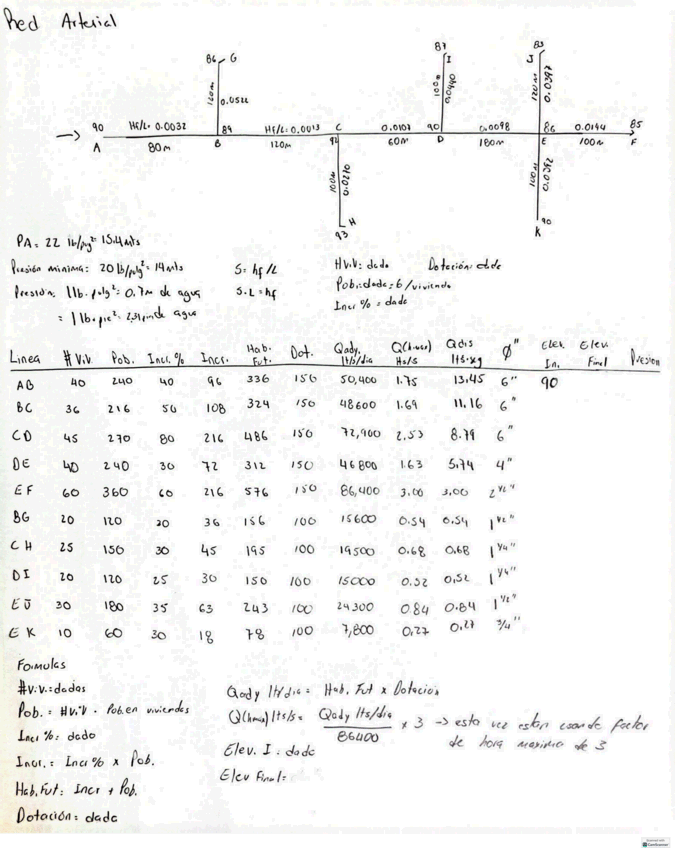 Red Arterial
86 G
120m
0.0522
87
I
100m
0.0440
83
J
120m
0.0397
90 Hf/L= 0.0032 89 Hf/L=0.0013 C 0.0107 90 0.0098 86 0.0144 85
A 80m B 120m 92 60m D 180m E 100m F
100m
0.0270
H
93
100m
0.0392
90
K
PA= 22 lb/pulg²= 15.4mts
Presión minima: 20 lb/pulg²= 14 mts
Presión: 1 lb. pulg²= 0.7m de agua
= 1 lb. pie²= de agua
S= hf/L
S.L= hf
# Viv: dado Dotación: dade
Pob: dada= 6/vivienda
Incr % = dado
Linea # Viv. Pob. Incr. % Incr. Hab. Fut. Dot. Qady. lts/dia Q(hmax) lts/s Qdis lts.sg Ø" Elev. In. Elev. Final Presion
AB 40 240 40 96 336 150 50,400 1.75 13.45 6" 90
BC 36 216 50 108 324 150 48600 1.69 11.16 6"
CD 45 270 80 216 486 150 72,900 2.53 8.79 6"
DE 40 240 30 72 312 150 46800 1.63 5.74 4"
EF 60 360 60 216 576 150 86,400 3.00 3.00 2 1/2"
BG 20 120 30 36 156 100 15600 0.54 0.54 1 1/2"
CH 25 150 30 45 195 100 19500 0.68 0.68 1 1/4"
DI 20 120 25 30 150 100 15000 0.52 0.52 1 1/4"
EJ 30 180 35 63 243 100 24300 0.84 0.84 1 1/2"
EK 10 60 30 18 78 100 7,800 0.27 0.27 3/4"
Formulas
# Viv.= dados
Pob. = #Viv · Pob. en viviendas
Incr %: dado
Incr. = Incr % x Pob.
Hab. Fut: Incr + Pob.
Dotación = dada
Qady lts/dia = Hab. Fut x Dotacion
Q(hmax) lts/s= Qady lts/dia / 86400 x 3 → esta vez estan usando factor
de hora maxima de 3
Elev. I = dade
Elev Final=
Scanned with
CamScanner